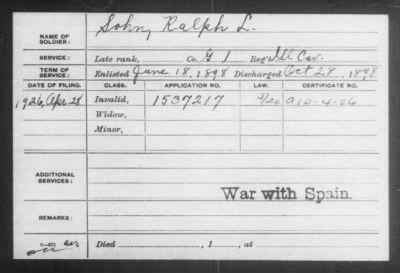 NAME OF SOLDIER: Sohn, Ralph L.
SERVICE: Late rank, Co. G 1 Reg Ill Cav.
TERM OF SERVICE: Enlisted June 18, 1898 Discharged Oct 28, 1898
DATE OF FILING. CLASS. APPLICATION NO. LAW. CERTIFICATE NO.
1926, Apr 28 Invalid, 1537217 A 10-4-26
Widow,
Minor,
ADDITIONAL SERVICES:
War with Spain.
REMARKS:
Died , 1 , at